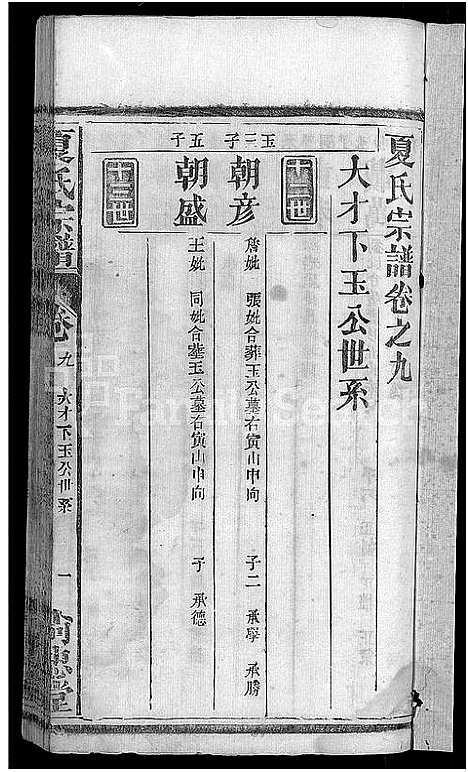 夏氏宗譜卷之九
大才下玉公世系
十二世
玉三子
朝彦
詹妣 張妣合葬玉公墓右寅山申向 子二 承學 承勝
五子
朝盛
王妣 同妣合葬玉公墓右寅山申向 子 承德
十三世
夏氏宗譜 卷 九 大才下玉公世系 一